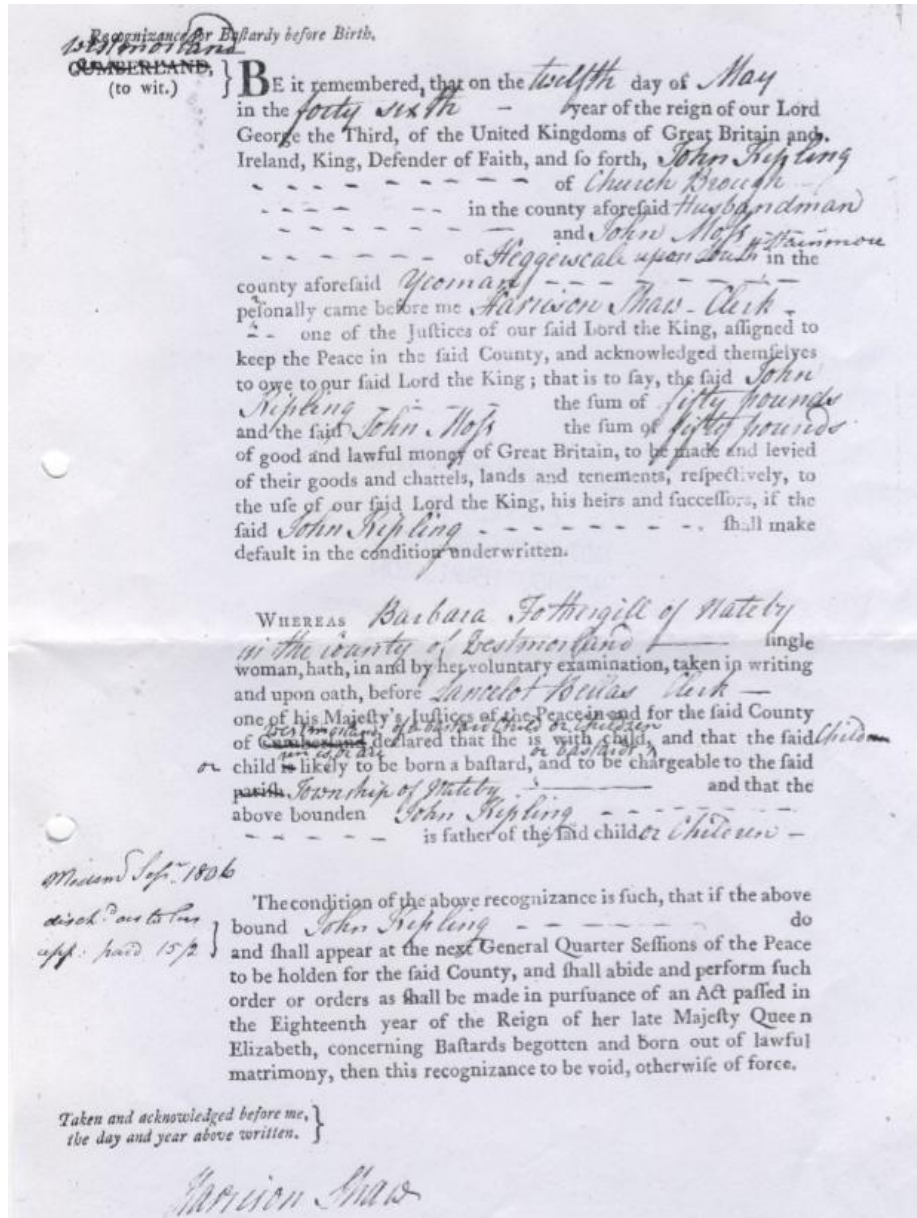 Recognizance for Baſtardy before Birth.
Westmorland
CUMBERLAND,
(to wit.)
BE it remembered, that on the twelfth day of May
in the forty sixth - year of the reign of our Lord
George the Third, of the United Kingdoms of Great Britain and
Ireland, King, Defender of Faith, and ſo forth, John Kipling
of Church Brough
in the county aforeſaid Husbandman
and John Moſs
of Heggerscale upon South Stainmore in the
county aforeſaid Yeoman
peſonally came before me Harrison Shaw - Clerk -
one of the Juſtices of our ſaid Lord the King, aſſigned to
keep the Peace in the ſaid County, and acknowledged themſelves
to owe to our ſaid Lord the King; that is to ſay, the ſaid John
Kipling the ſum of fifty pounds
and the ſaid John Moſs the ſum of fifty pounds
of good and lawful money of Great Britain, to be made and levied
of their goods and chattels, lands and tenements, reſpectively, to
the uſe of our ſaid Lord the King, his heirs and ſucceſſors, if the
ſaid John Kipling ſhall make
default in the condition underwritten.
WHEREAS Barbara Fothergill of Nateby
in the County of Westmorland ſingle
woman, hath, in and by her voluntary examination, taken in writing
and upon oath, before Lancelot Bellas Clerk —
one of his Majeſty's Juſtices of the Peace in and for the ſaid County
Westmorland of a bastard Child or Children
of Cumberland declared that ſhe is with child, and that the ſaid Children
is or are or bastards
or child is likely to be born a baſtard, and to be chargeable to the ſaid
pariſh Township of Nateby and that the
above bounden John Kipling
is father of the ſaid child or Children -
Midsumr Seſsn 1806
disch'd as to his
app: paid 15/2
The condition of the above recognizance is ſuch, that if the above
bound John Kipling do
and ſhall appear at the next General Quarter Seſſions of the Peace
to be holden for the ſaid County, and ſhall abide and perform ſuch
order or orders as ſhall be made in purſuance of an Act paſſed in
the Eighteenth year of the Reign of her late Majeſty Queen
Elizabeth, concerning Baſtards begotten and born out of lawful
matrimony, then this recognizance to be void, otherwiſe of force.
Taken and acknowledged before me,
the day and year above written.
Harrison Shaw